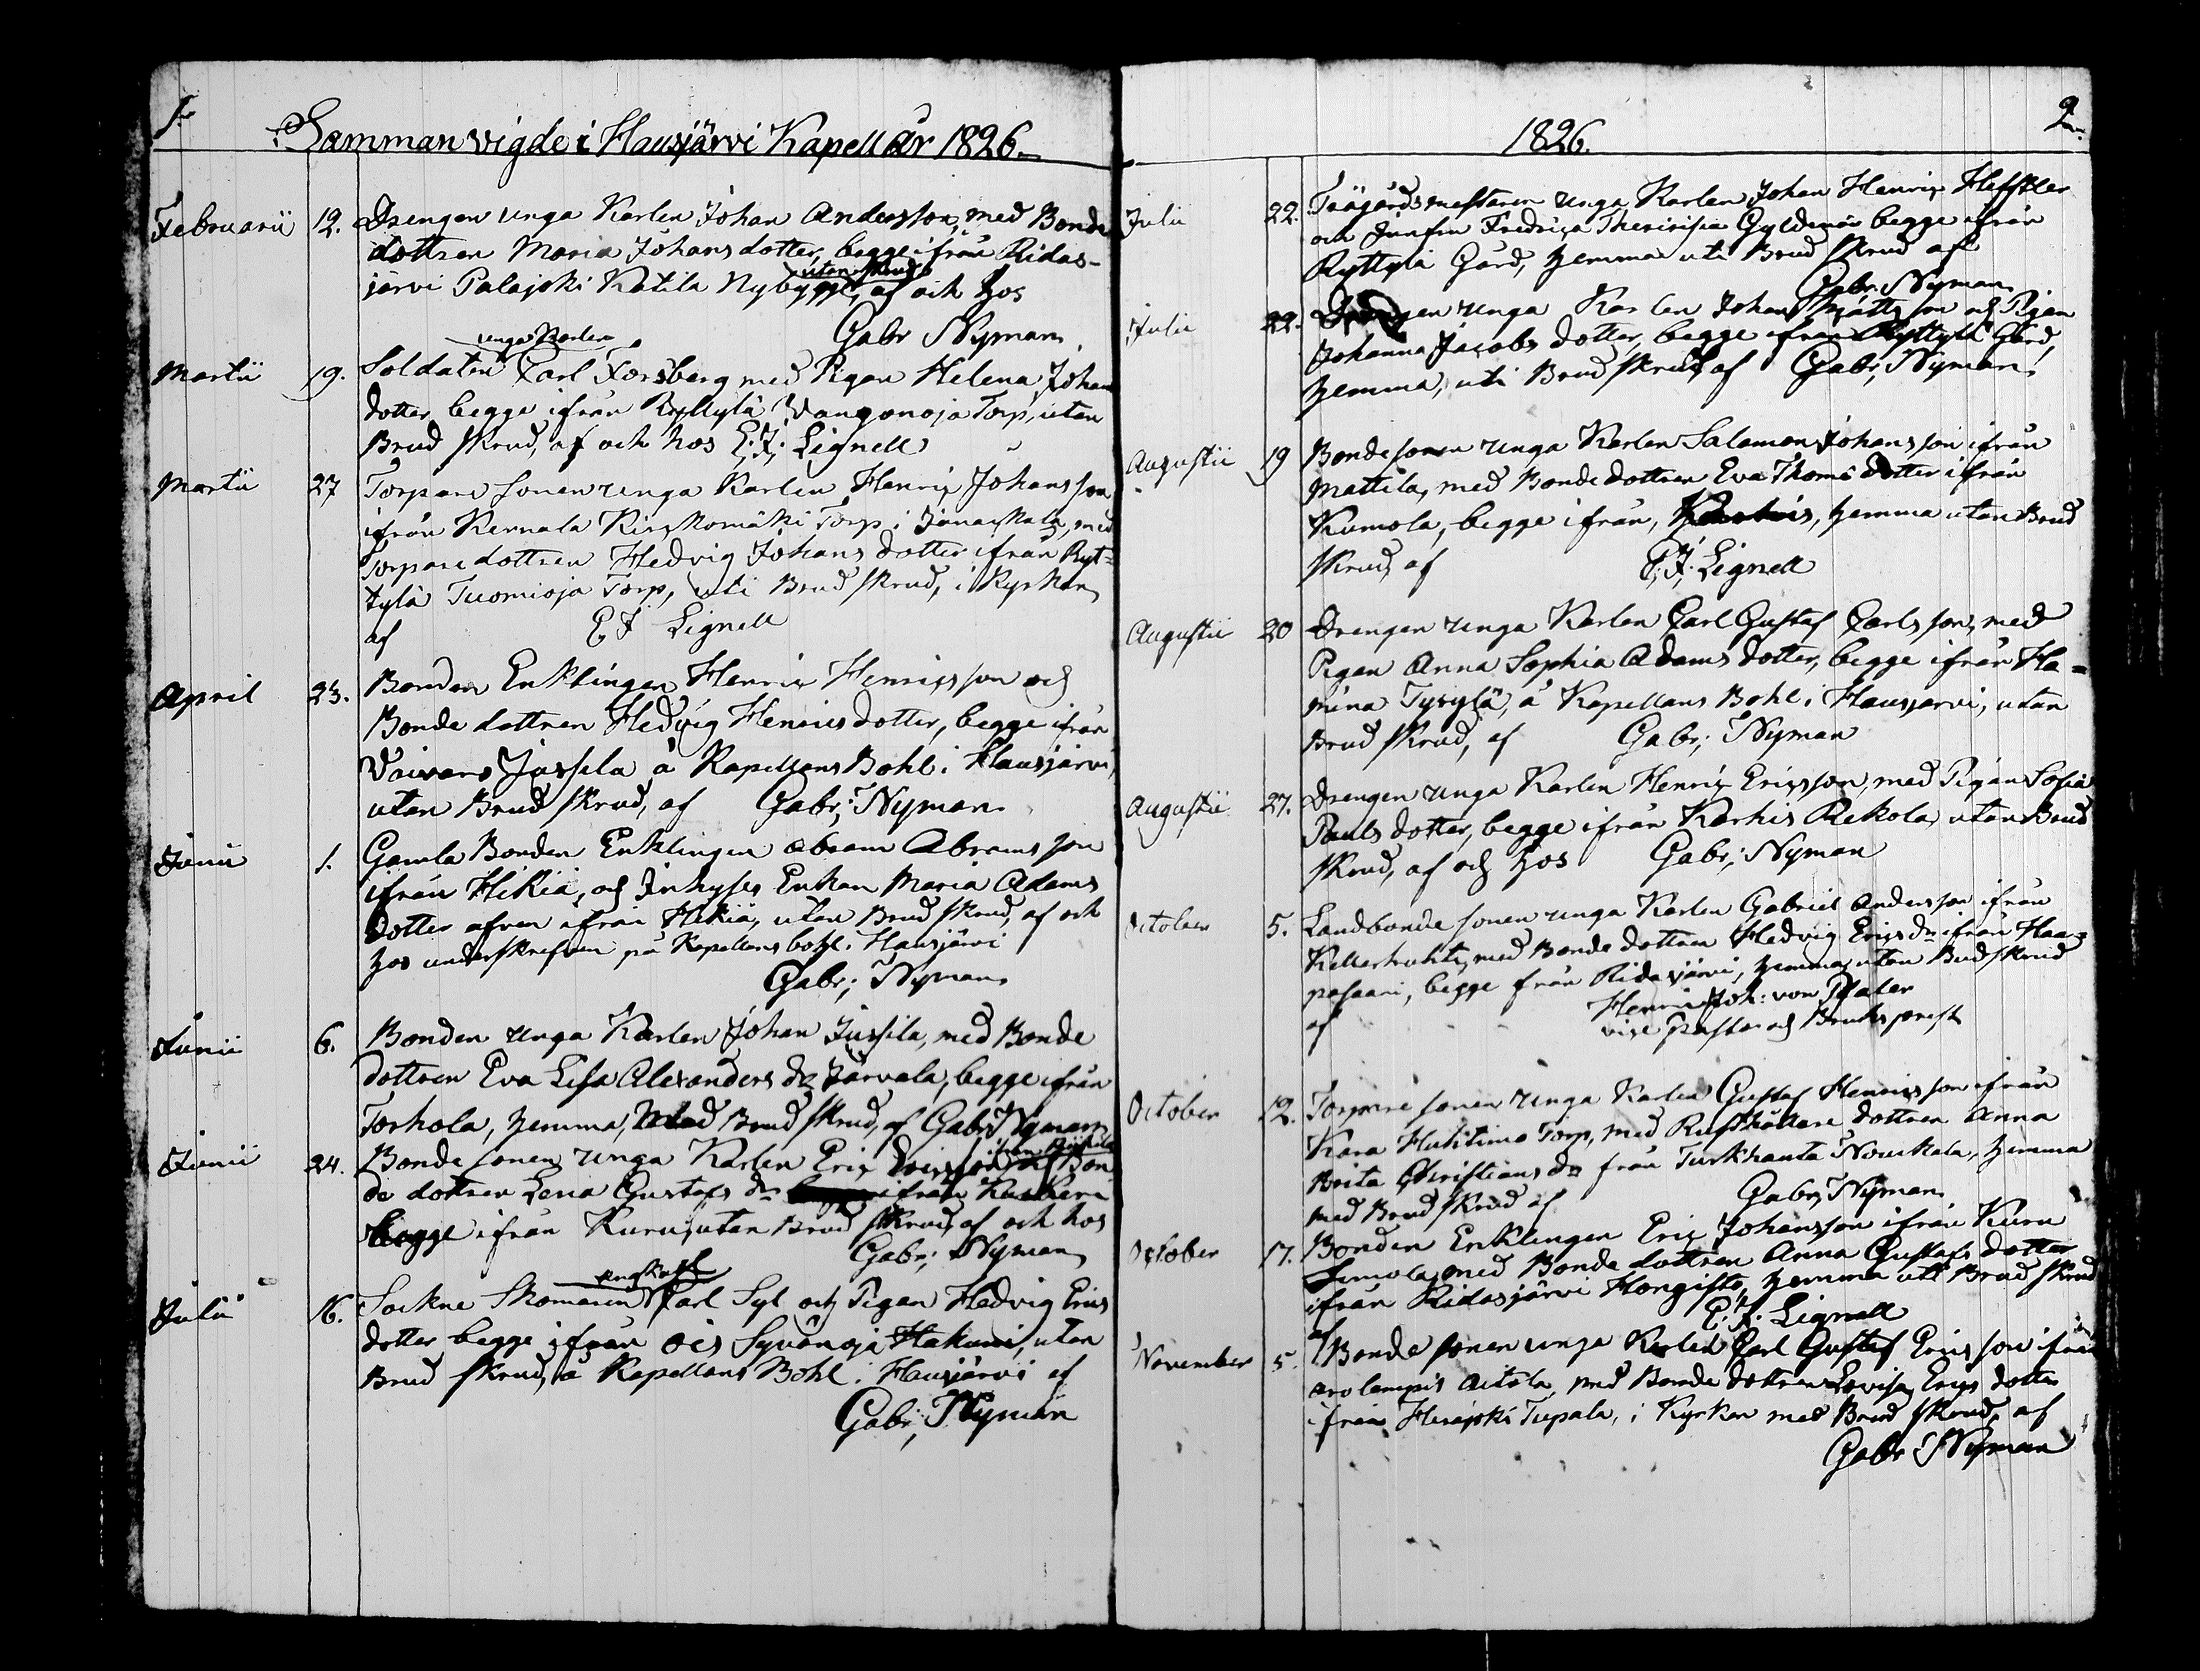 1.
Sammanvigde i Hausjärvi Kapell år 1826.
Februarii 12. Drengen unga Karlen Johan Andersson, med Bonde
dottren Maria Johans dotter, begge ifrån Ridas-
järvi Palajoki Katila Nybygge, utan skrud af och hos
Gabr Nyman
unga Karlen
Martii 19. Soldaten Carl Forsberg med Pigan Helena Johans
dotter, begge ifrån Ryttylä Vanganoja Torp, utan
Brud skrud, af och hos E. J. Lignell
Martii 27 Torpare sonen unga Karlen Henric Johansson
ifrån Kernala Torp i Janackala, med
Torpare dottren Hedvig Johans dotter ifrån Ryt-
tylä Tuomioja Torp, uti Brud skrud, i Kyrkan
af E J Lignell
April 23. Bonden Enklingen Henric Henricsson och
Bonde dottren Hedvig Henrics dotter, begge ifrån
Vaivars Jussila å Kapellans Bohl i Hausjärvi,
utan Brud skrud, af Gabr; Nyman
Junii 1. Gamla Bonden Enklingen Abram Abramsson
ifrån Hikiä, och Inhyses Enkan Maria Adams
dotter äfven ifrån Hikiä, utan Brud skrud, af och
hos underskrefven på Kapellans bohl i Hausjärvi
Gabr; Nyman
Junii 6. Bonden unga Karlen Johan Jussila, med Bonde
dottren Eva Lisa Alexanders dr Järvala, begge ifrån
Torhola, hemma, Med Brud skrud, af Gabr Nyman
Junii 24. Bonde sonen unga Karlen Eric Ericsson och Bon
de dottren Lena Gustafs dr ifrån
begge ifrån Kuru, utan Brud skrud, af och hos
Gabr; Nyman
Julii 16. Sockne Skomaren Carl Syl och Pigan Hedvig Erics
dotter begge ifrån Ois Syvänoja Hakuni, utan
Brud skrud, å Kapellans Bohl i Hausjärvi af
Gabr; Nyman
1826.
2
Julii 22. Trägårdsmästaren unga Karlen Johan Henric Heffler
och Junfru Fredrica Gyldenär begge ifrån
Ryttylä Gård, hemma uti Brud skrud af
Gabr. Nyman
Julii 22. Drengen unga Karlen Johan Mattsson och Pigan
Johanna Jacobs dotter, begge ifrån Ryttylä Gård,
hemma, uti Brud skrud af Gabr; Nyman
Augustii 19 Bonde sonen unga Karlen Salamon Johansson ifrån
Mattila, med Bonde dottren Eva Thoms dotter ifrån
Kumola, begge ifrån, Karhis, hemma utan Brud
skrud, af E. J. Lignell
Augustii 20 Drengen unga Karlen Carl Gustaf Carlsson, med
Pigan Anna Sophia Adams dotter, begge ifrån Ha=
mina Tyrylä, å Kapellans Bohl i Hausjärvi, utan
Brud skrud, af Gabr; Nyman
Augustii 27. Drengen unga Karlen Henric Ericsson, med Pigan Sofia
Pauls dotter, begge ifrån Karhis Rekola utan Brud
skrud, af och hos Gabr; Nyman
October 5. Landbonde sonen unga Karlen Gabriel Andersson ifrån
Kellarhuhta, med Bonde dottren Hedvig Erics dr ifrån Haa=
pasaari, begge från Ridasjärvi, hemma utan Brud skrud
af Henric Joh: von Pfaler
vice Pastor och Bruks prest
October 12. Torpare sonen unga Karlen Gustaf Henricsson ifrån
Kara Huhtimo Torp, med Rusthållare dottren Anna
Brita Christians dr från Turkhauta Nourkala, hemma
med Brud skrud af Gabr; Nyman
October 17. Bonden Enklingen Eric Johansson ifrån Kuru
Simola med Bonde dottren Anna Gustafs dotter
ifrån Ridasjärvi Hongisto, hemma uti Brud skrud
af E. J. Lignell
November 5. Bonde sonen unga Karlen Carl Gustaf Ericsson ifrån
Arolampis Aitola, med Bonde dottren Lovisa Erics dotter
ifrån Herajoki Tupala, i Kyrkan med Brud skrud, af
Gabr Nyman